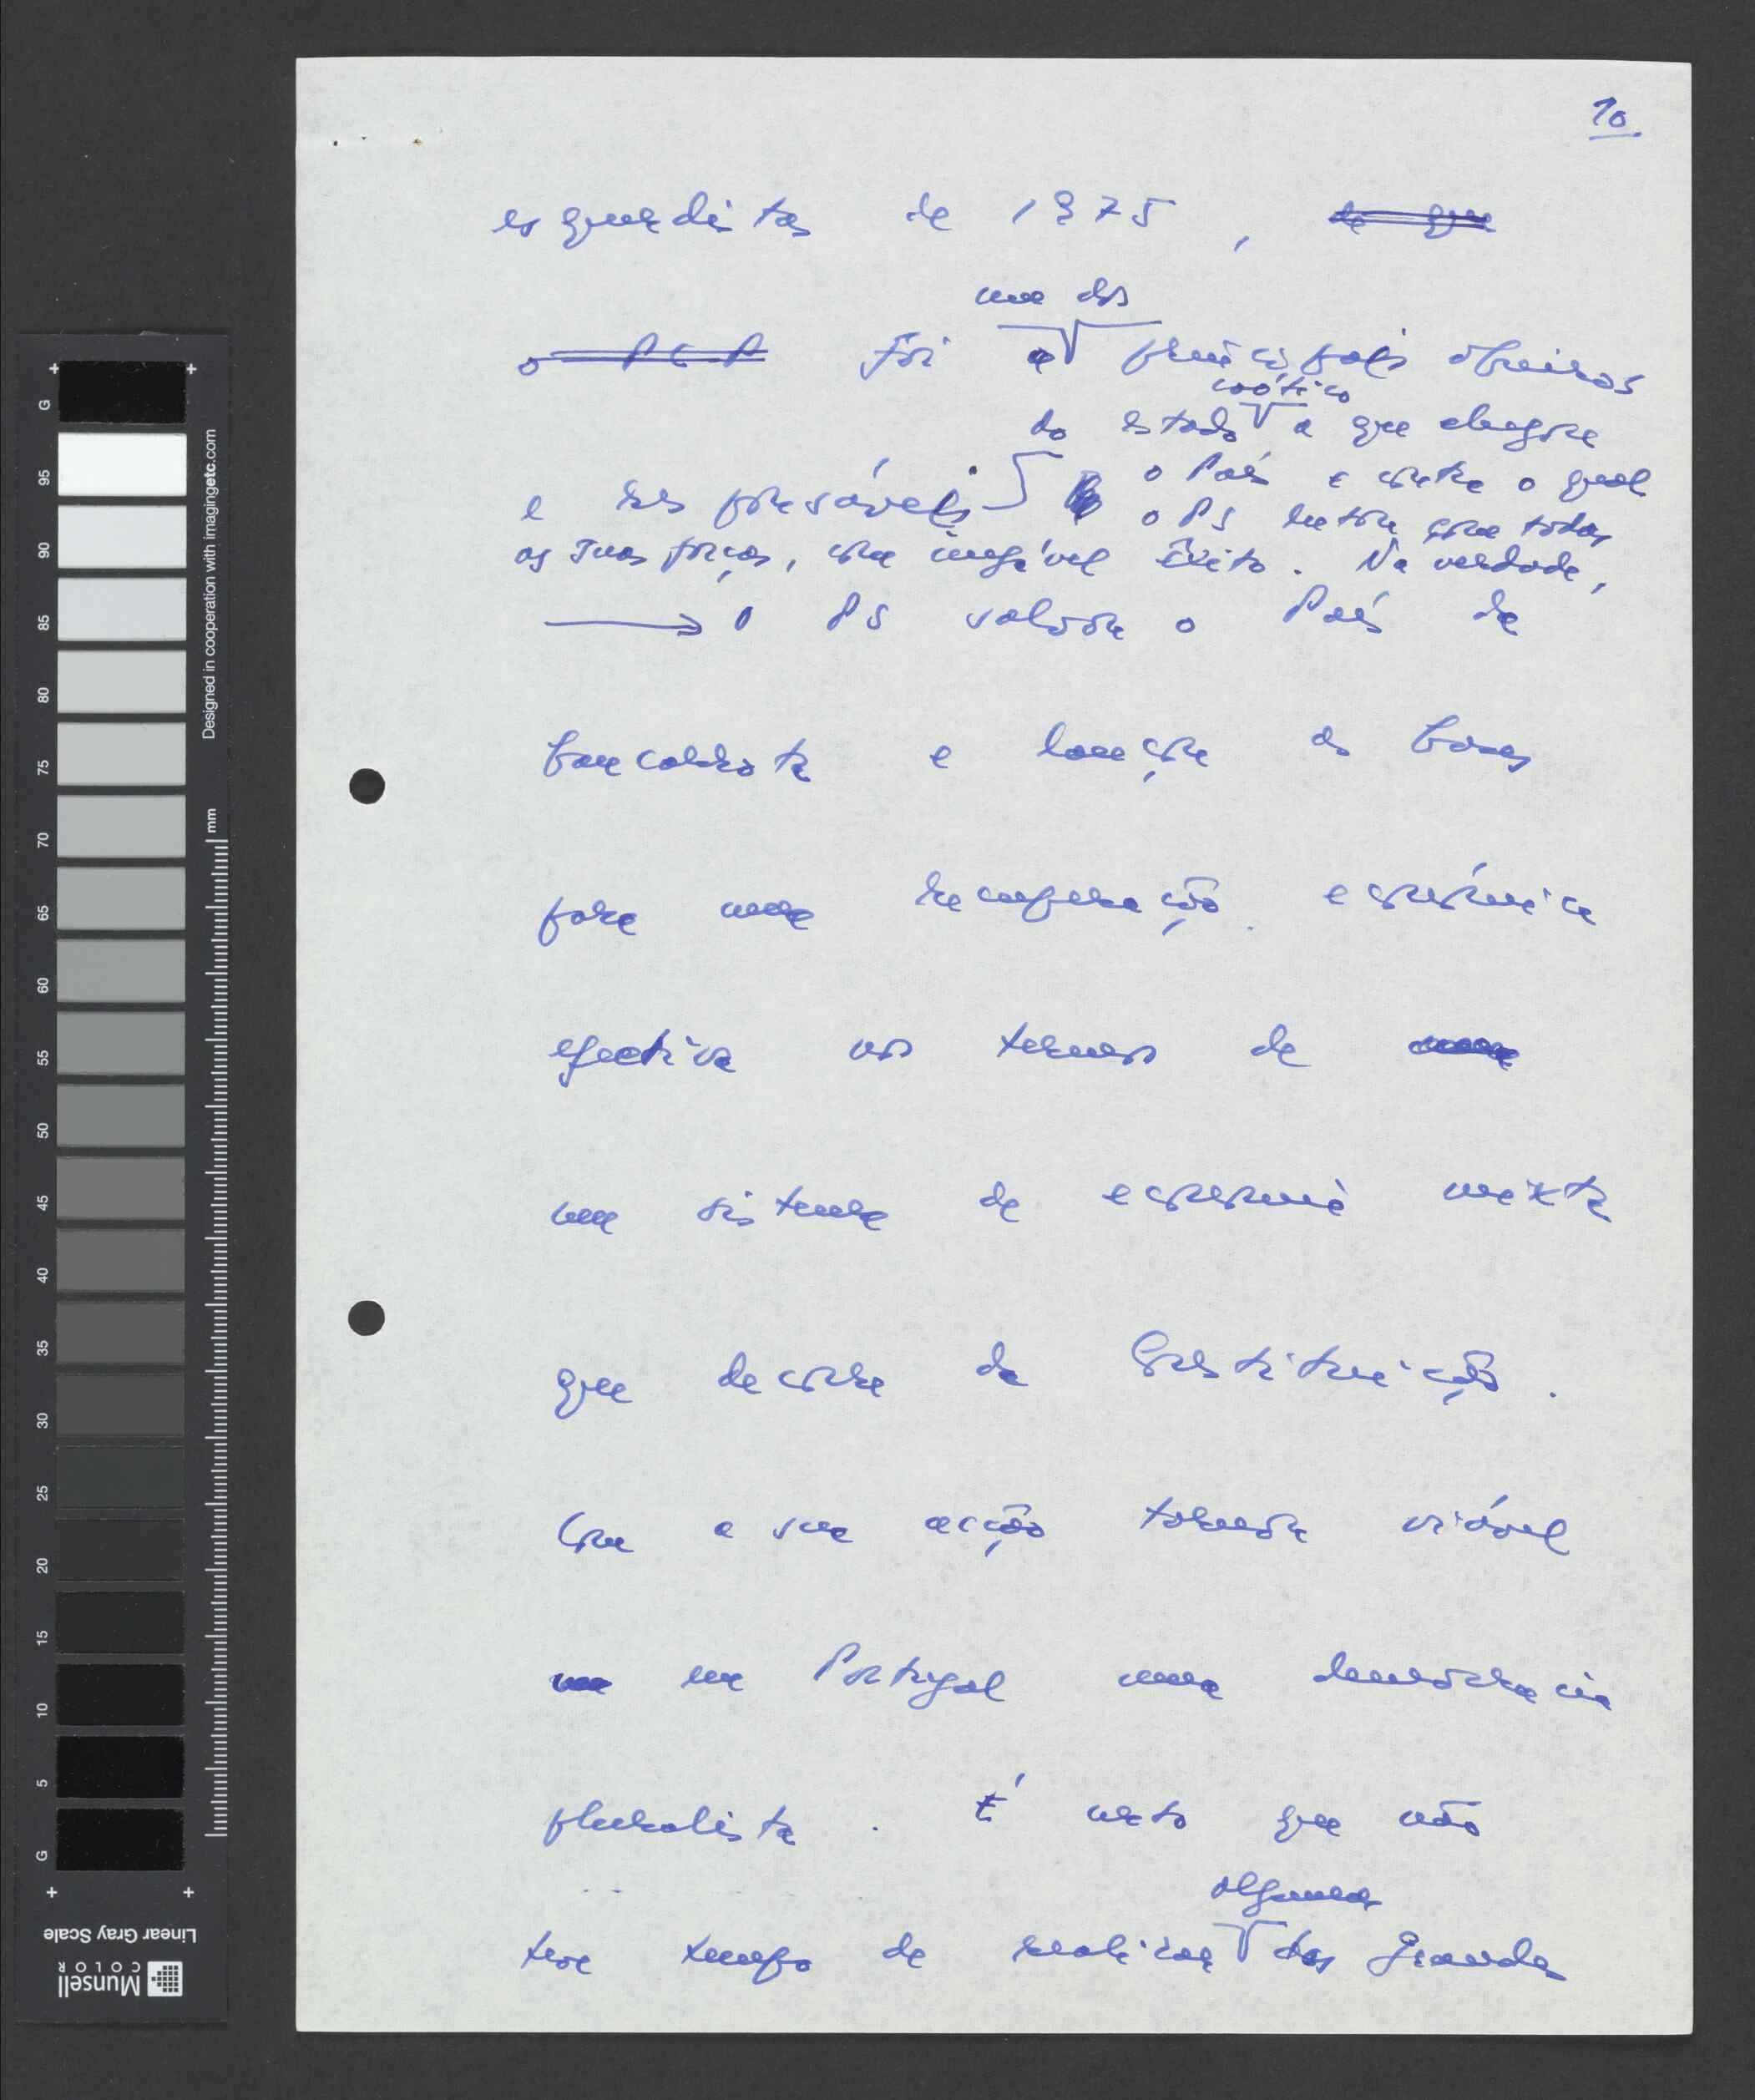 10
esquerdistas de 1975, de que
um dos
o PCP foi o principais obreiros
caótico
do estado a que chegou
e responsáveis o País e contra o qual
o PS lutou com todas
as suas forças, com inegável êxito. Na verdade,
o PS salvou o País da
bancarrota e lançou as bases
para uma recuperação económica
efectiva nos termos de uma
um sistema de economia mixta
que decorre da Constituição.
Com a sua acção tornou viável
em Portugal uma democracia
pluralista. É certo que não
algumas
teve tempo de realizar das grandes
G 95 90 85 80 75 70 65 60 55 50 45 40 35 30 25 20 15 10 5 G
mm
Designed in cooperation with imagingetc.com
Munsell COLOR
Linear Gray Scale